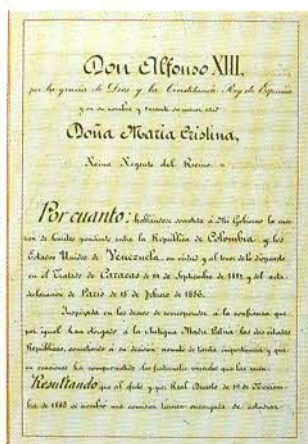 Don Alfonso XIII,
por la gracia de Dios y la Constitución Rey de España
y en su nombre y durante su menor edad
Doña María Cristina,
Reina Regente del Reino.
Por cuanto: hallándose sometida á Mi Gobierno la cues-
tion de límites pendiente entre la República de Colombia y los
Estados Unidos de Venezuela, en virtud y al tenor de lo dispuesto
en el Tratado de Caracas de 14 de Septiembre de 1881 y del acta
declaracion de París de 15 de Febrero de 1886.
Inspirada en los deseos de corresponder á la confianza que
por igual han otorgado á la Antigua Madre Patria las dos citadas
Repúblicas, sometiendo á su decisión asunto de tanta importancia y que
en ocasiones ha comprometido las fraternales
Resultando que al efecto y por Real Decreto de 19 de Noviem-
bre de 1883 se nombró una comision tecnica encargada de estudiar